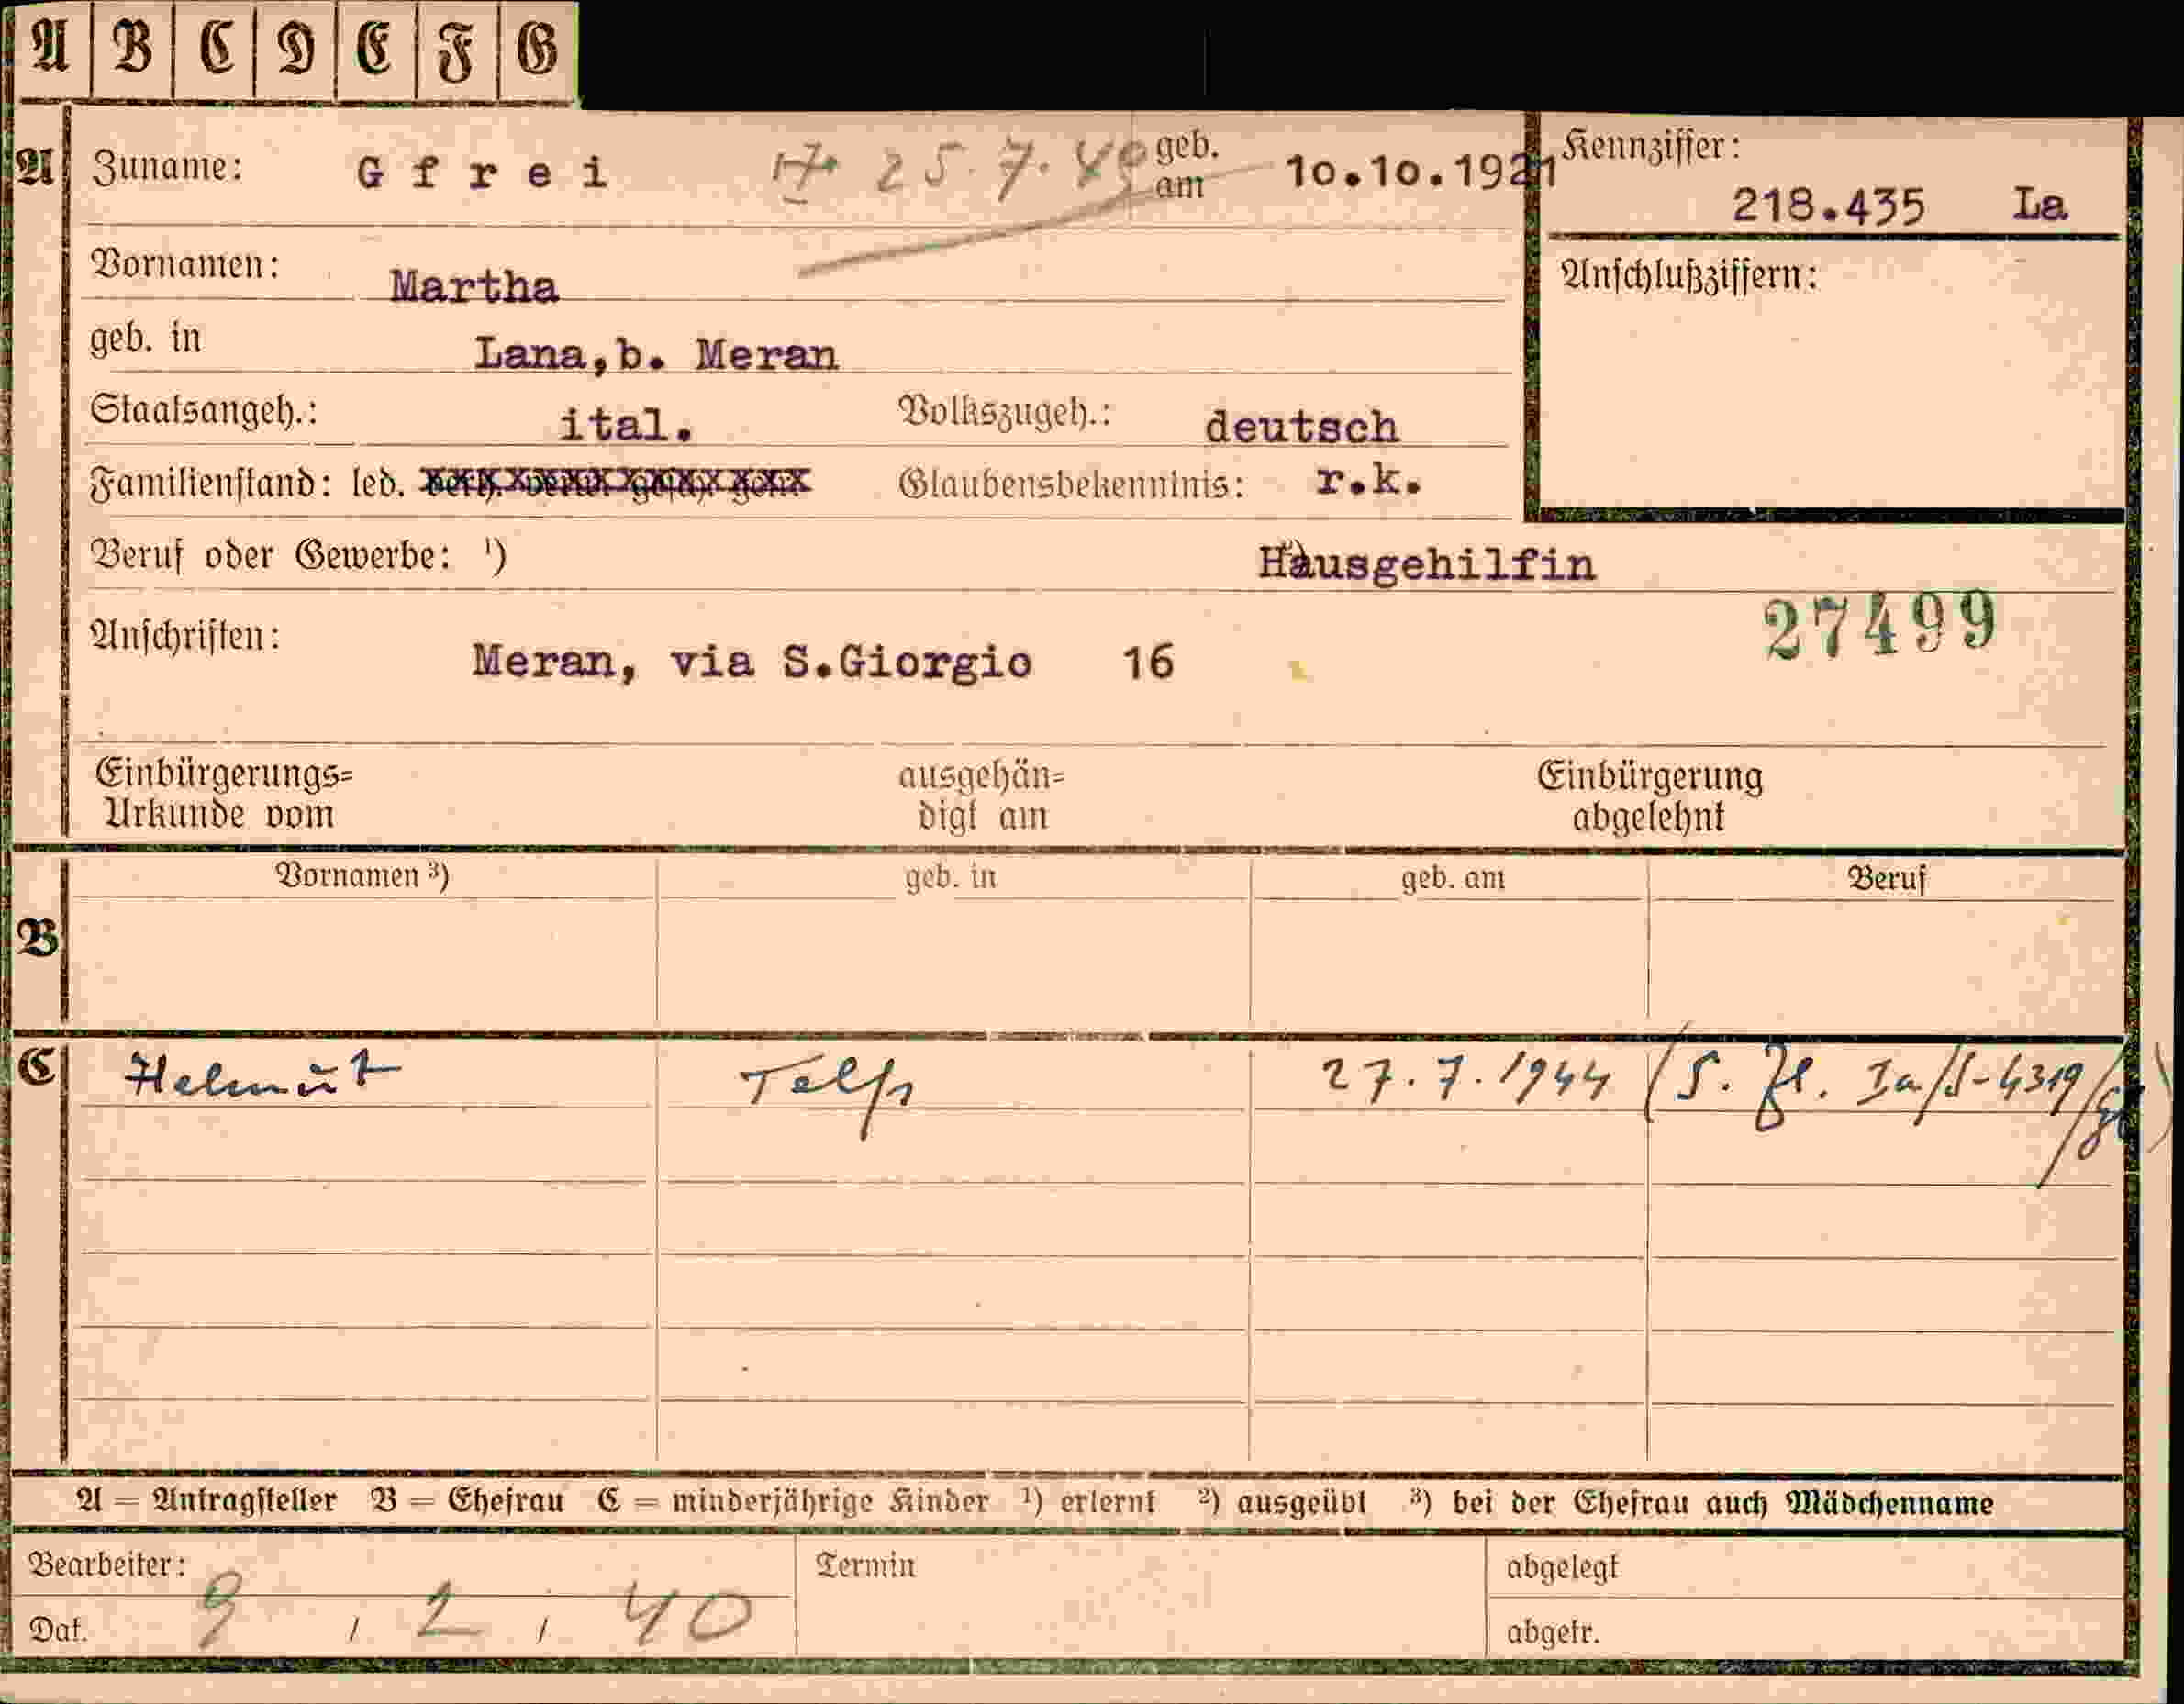 A B C D E F G
A Zuname: Gfrei 25.7.49 geb. am 10.10.1921 Kennziffer:
218.435 La
Vornamen: Martha
Anschlußziffern:
geb. in Lana,b. Meran
Staatsangeh.: ital. Volkszugeh.: deutsch
Familienstand: led. Glaubensbekenntnis: r.k.
Beruf oder Gewerbe: ¹) ²) Hausgehilfin
27499
Anschriften: Meran, via S.Giorgio 16
Einbürgerungs= ausgehän= Einbürgerung
Urkunde vom digt am abgelehnt
Vornamen ³) geb. in geb. am Beruf
B
C Helmut Telfs 27.7.1944 (S. Zl. Ia/S-4319/
A = Antragsteller B = Ehefrau C = minderjährige Kinder ¹) erlernt ²) ausgeübt ³) bei der Ehefrau auch Mädchenname
Bearbeiter: Termin abgelegt
Dat. 9 / 2 / 40 abgetr.